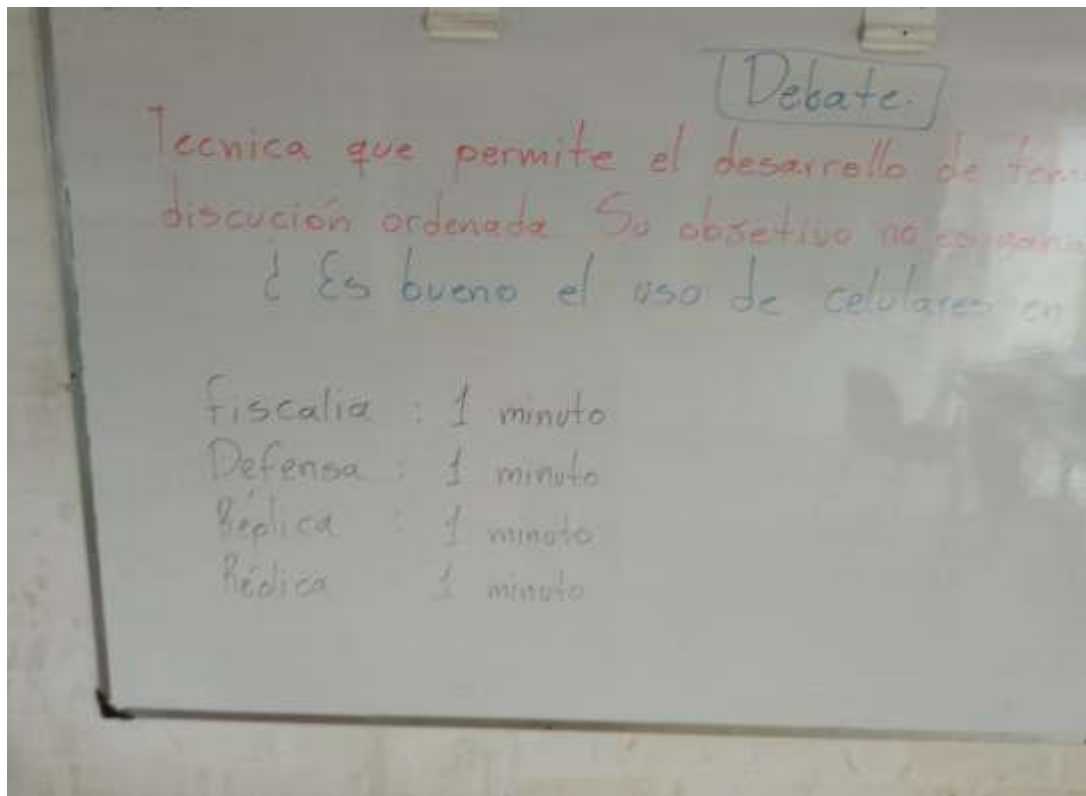 Debate.
Tecnica que permite el desarrollo de
discución ordenada Su obsetivo no
¿ Es bueno el uso de celulares en
fiscalia : 1 minuto
Defensa : 1 minuto
Réplica : 1 minuto
1 minuto